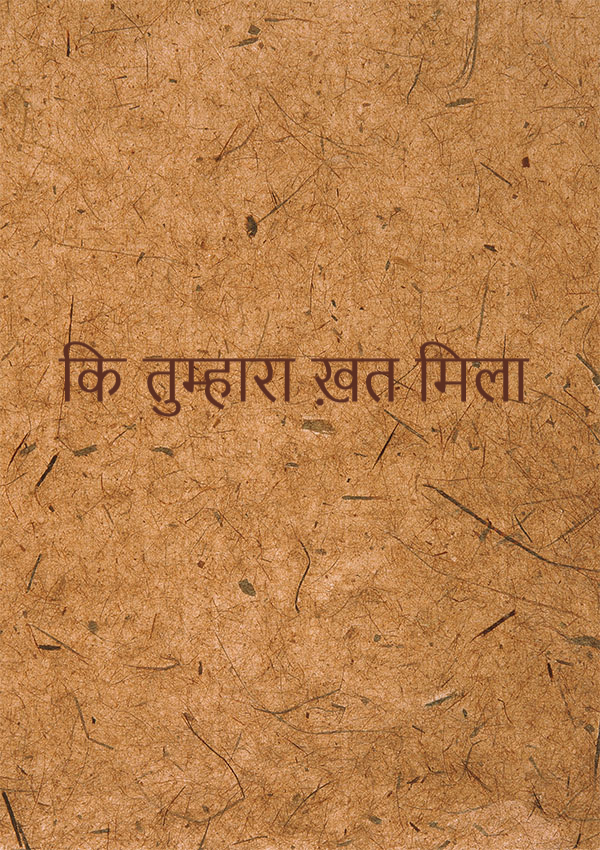 कि तुम्हारा ख़त मिला